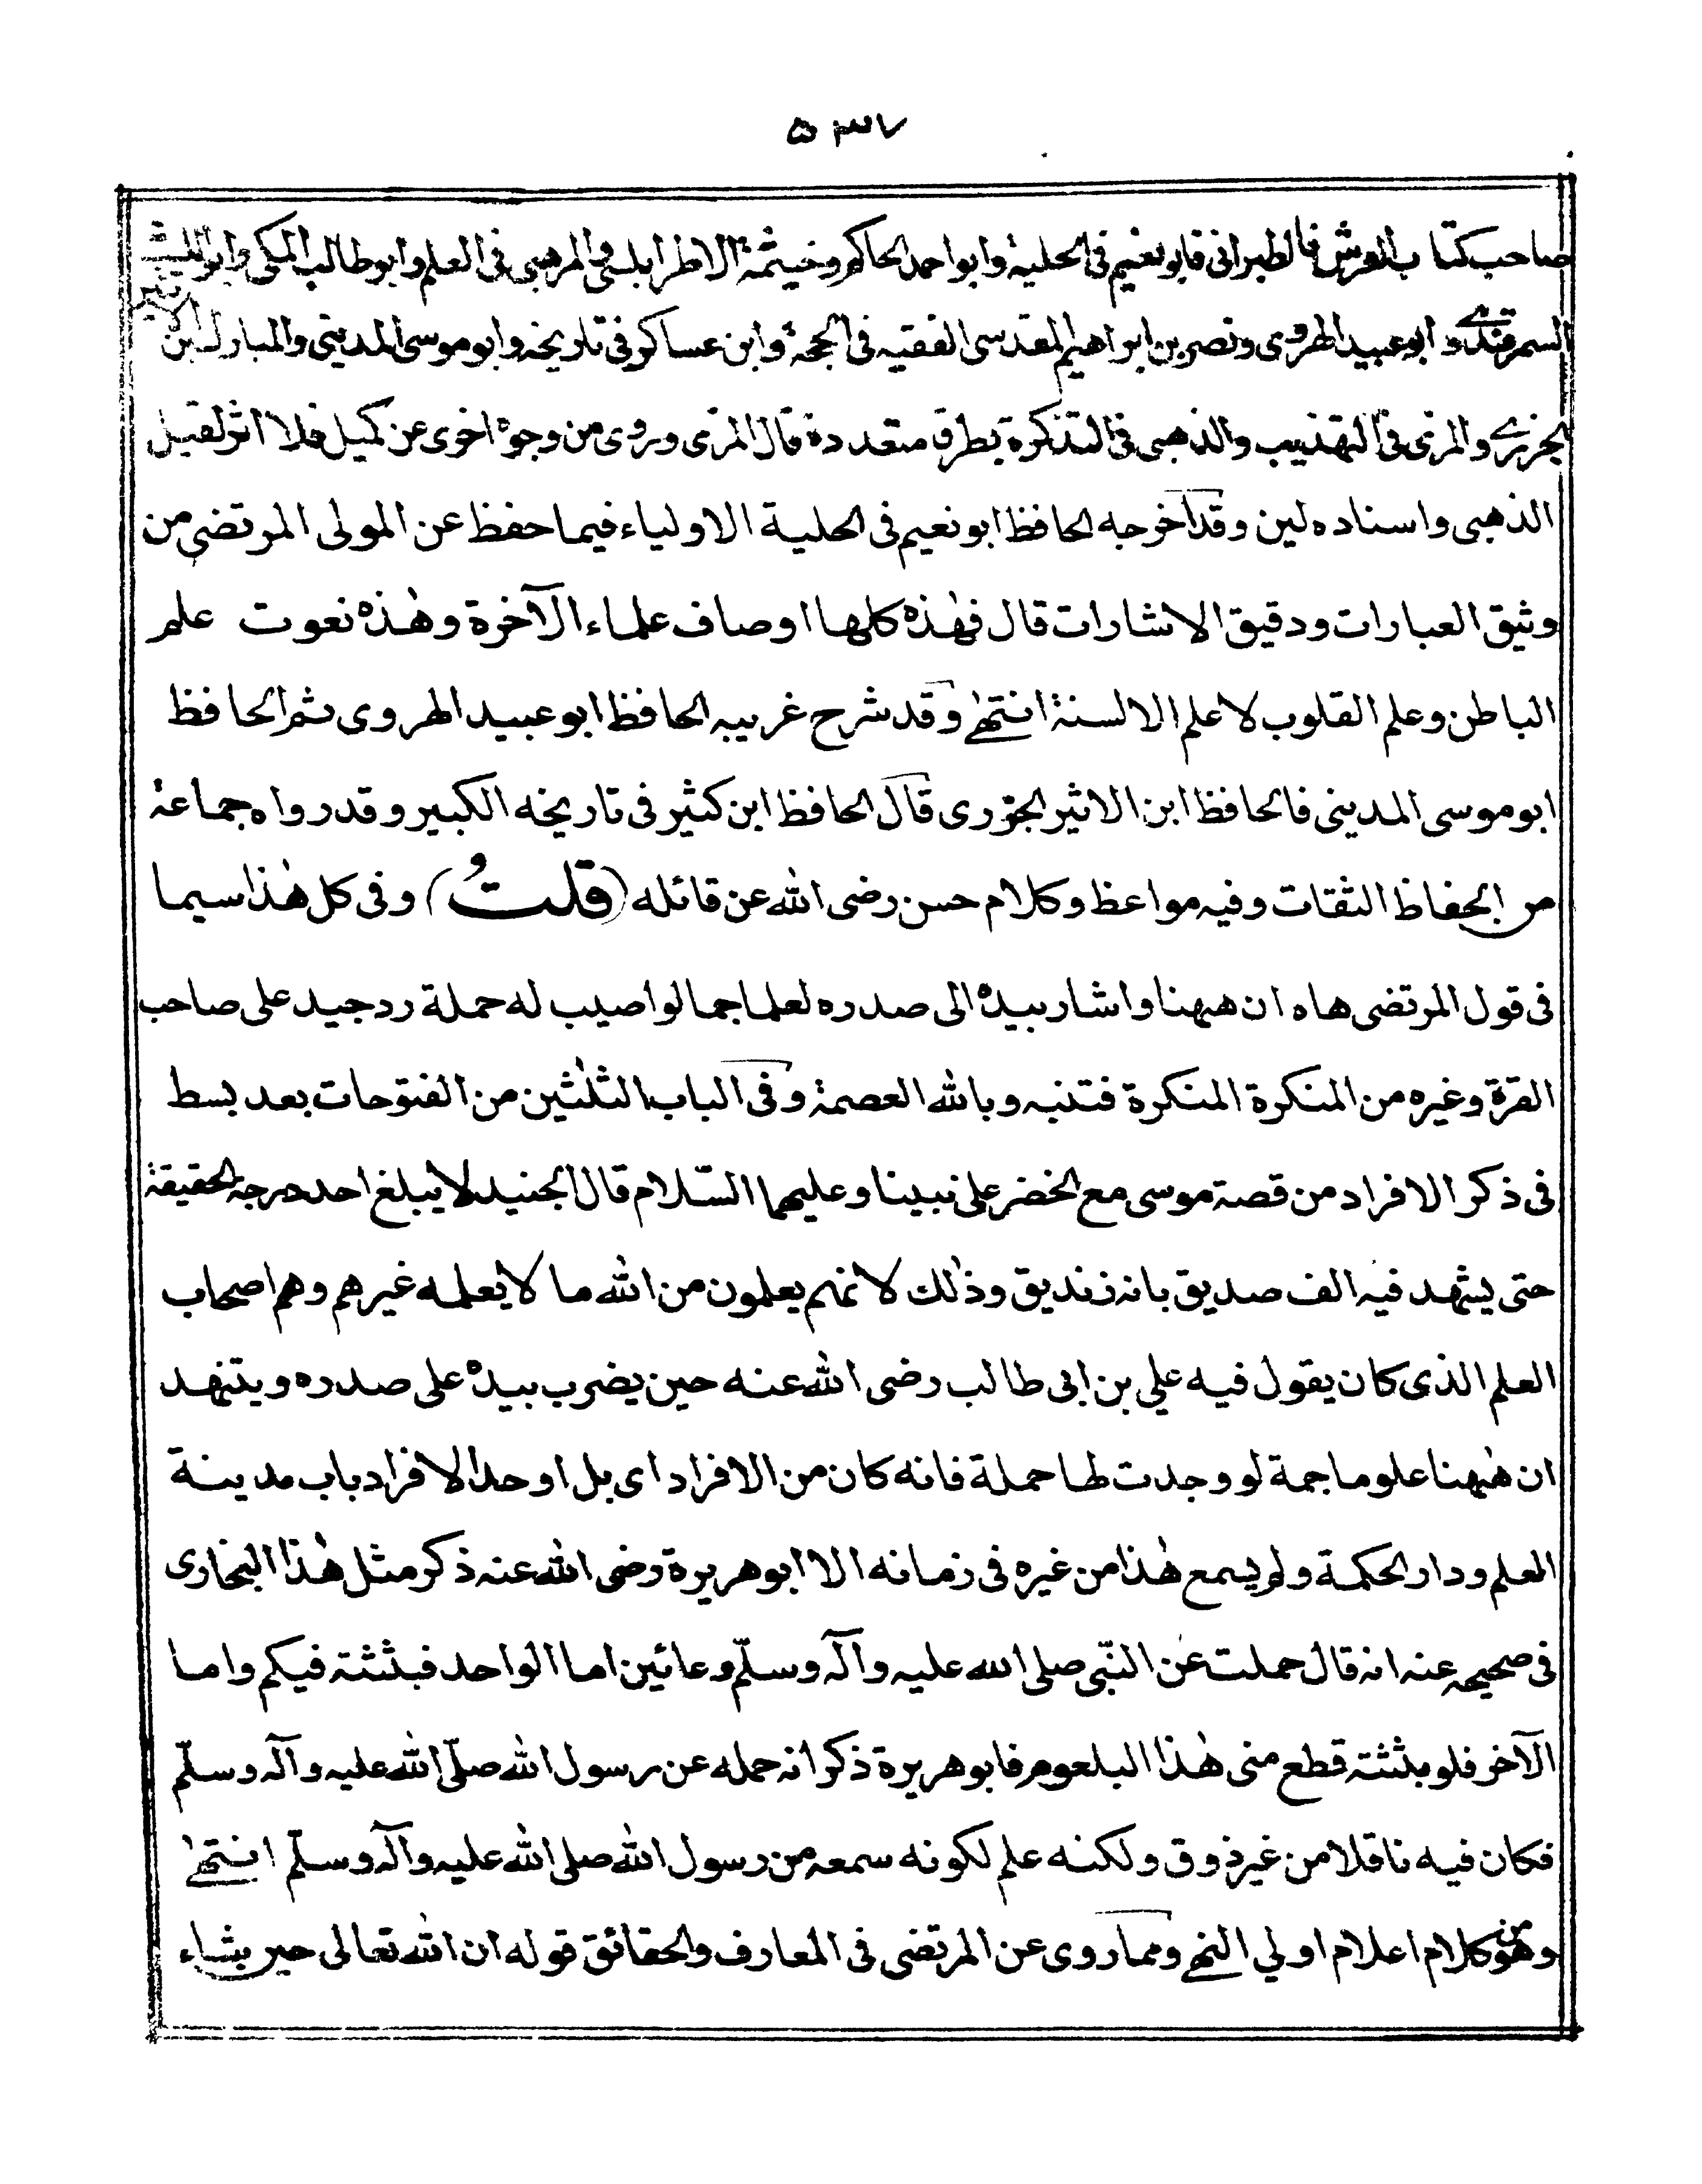 ۵۳۷
صاحب كتاب العرش فالطبرانى فابو نعيم فى الحلية وابو احمد الحاكم وخيثمة الاطرابلسى والمرهبى فى العلم وابو طالب المكى وابو الليث
السمرقندے و ابو عبيد الهروى ونصر بن ابراهيم المقدسى الفقيه فى الحجة وابن عساكر فى تاريخه وابو موسى المدينى والمبارك ابن الاثير
الجزرے والمزى فى التهذيب والذهبى فى التذكرة بطرق متعددة قال المزى وروى من وجوه اخرى عن كميل فلا اثر لقيل
الذهبى واسناده لين وقد اخرجه الحافظ ابو نعيم فى الحلية الاولياء فيما حفظ عن المولى المرتضى من
وثيق العبارات ودقيق الاشارات قال فهٰذه كلها اوصاف علماء الآخرة وهٰذه نعوت علم
الباطن وعلم القلوب لا علم الالسنة انتهٰى وقد شرح غريبه الحافظ ابو عبيد الهروى ثم الحافظ
ابو موسى المدينى فالحافظ ابن الاثير الجزرى قال الحافظ ابن كثير فى تاريخه الكبير وقد رواه جماعة
من الحفاظ الثقات وفيه مواعظ وكلام حسن رضى الله عن قائله (قلتُ) وفى كل هٰذا سيما
فى قول المرتضى هاه ان ههنا واشار بيده الى صدره لعلما جما لو اصيب له حملة رد جيد على صاحب
القرة وغيره من المنكرة المنكرة فتنبه وبالله العصمة وفى الباب الثلٰثين من الفتوحات بعد بسط
فى ذكر الافراد من قصة موسى مع الخضر على نبينا وعليهما السّلام قال الجنيد لا يبلغ احد درجة الحقيقة
حتى يشهد فيه الف صديق بانه زنديق وذٰلك لانهم يعلمون من الله ما لا يعلمه غيرهم وهم اصحاب
العلم الذى كان يقول فيه على بن ابى طالب رضى الله عنه حين يضرب بيده على صدره ويتنهد
ان هٰهنا علوما جمة لو وجدت لها حملة فانه كان من الافراد اى بل اوحد الافراد باب مدينة
العلم ودار الحكمة ولم يسمع هٰذا من غيره فى زمانه الا ابو هريرة رضى الله عنه ذكر مثل هٰذا البخارى
فى صحيحه عنه انه قال حملت عن النّبى صلى الله عليه وآله وسلّم وعائين اما الواحد فبثثته فيكم واما
الآخر فلو بثثته قطع منى هٰذا البلعوم فابو هريرة ذكر انه حمله عن رسول الله صلّى الله عليه وآله وسلّم
فكان فيه ناقلا من غير ذوق ولكنه علم لكونه سمعه من رسول الله صلى الله عليه وآله وسلّم انتهٰى
وهو من كلام اعلام اولي النهى ومما روى عن المرتضى فى المعارف والحقائق قوله ان الله تعالى حين شاء